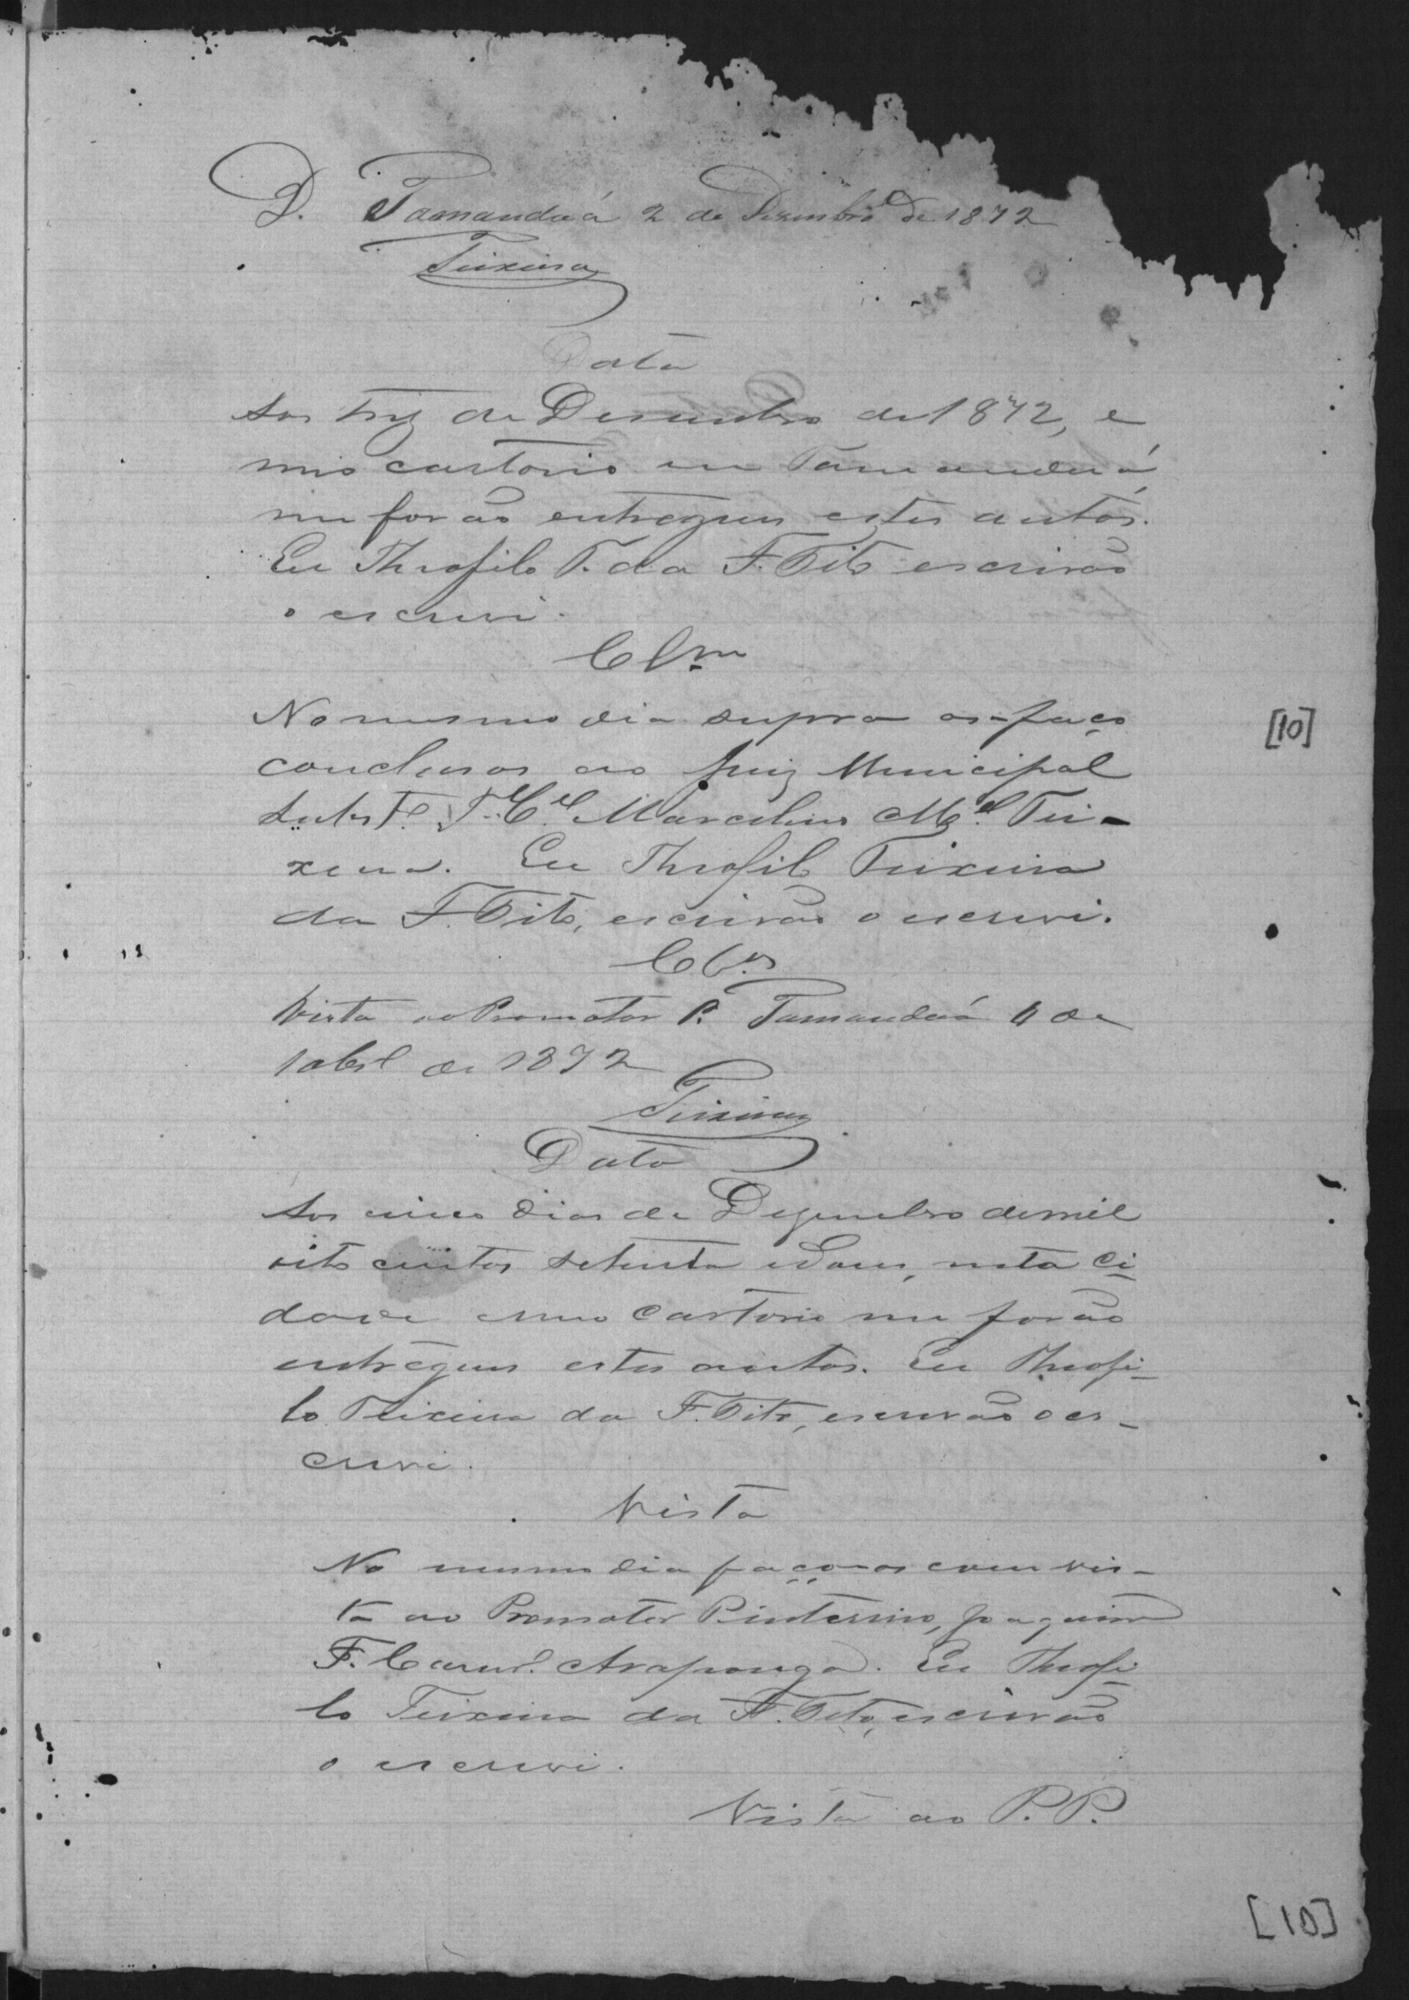 D. Tamanduá 2 de Dezembro de 1872
Teixeira
Data
Aos trez de Desembro de 1872, e
meo cartorio em Tamanduá,
me forão entregues estes autos.
Eu Theofilo T. da F. Tito escrivão
o escrevi.
Clm
No mesmo dia supra os faço
conclusos ao Juiz Municipal
Subst.e T.e C.el Marcelino M.el Tei-
xeira. Eu Theofilo Teixeira
da F. Tito, escrivão o escrevi.
Cl.os
Vista ao Promotor P. Tamanduá 4 de
de 1872
Teixeira
Data
Aos cinco dias de Dezembro de mil
oito centos setenta e dous, nesta ci-
dade e meo cartorio me forão
entregues estes autos. Eu Theofi-
lo Teixeira da F. Tito, escrivão o es-
crevi.
Vista
No mesmo dia faço-os com vis-
ta ao Promotor P. interino, Joaquim
F. Carn.o Araponga. Eu Theofi-
lo Teixeira da F. Tito, escrivão
o escrevi.
Vista ao P. P.
[10]
[10]